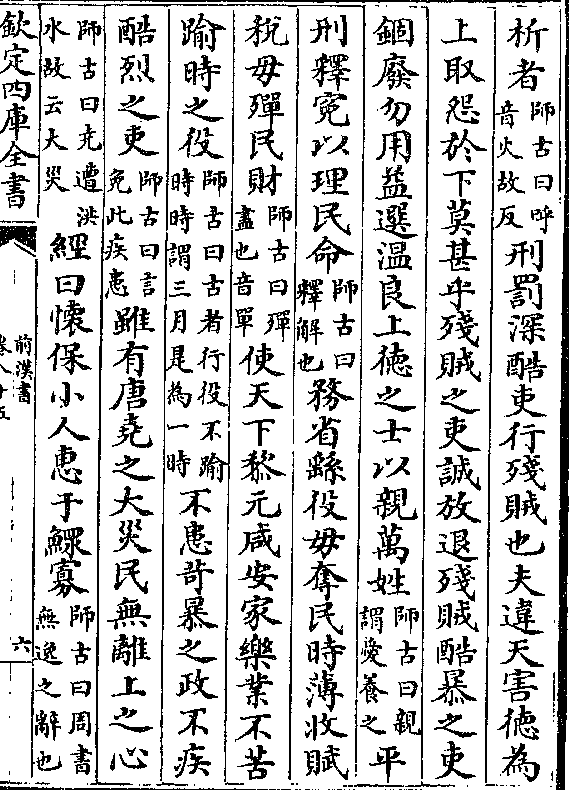 析者師古曰呼音火故反刑罰深酷吏行殘賊也夫違天害德為
上取怨於下莫甚乎殘賊之吏誠放退殘賊酷暴之吏
錮廢勿用益選溫良上德之士以親萬姓師古曰親謂愛養之平
刑釋冤以理民命師古曰釋解也務省繇役毋奪民時薄收賦
稅毋殫民財師古曰殫盡也音單使天下黎元咸安家樂業不苦
踰時之役師古曰古者行役不踰時時謂三月是為一時不患苛暴之政不疾
酷烈之吏師古曰言免此疾患雖有唐堯之大災民無離上之心
師古曰堯遭洪水故云大災經曰懷保小人惠于鰥寡師古曰周書無逸之辭也
欽定四庫全書
前漢書
卷八十五
六